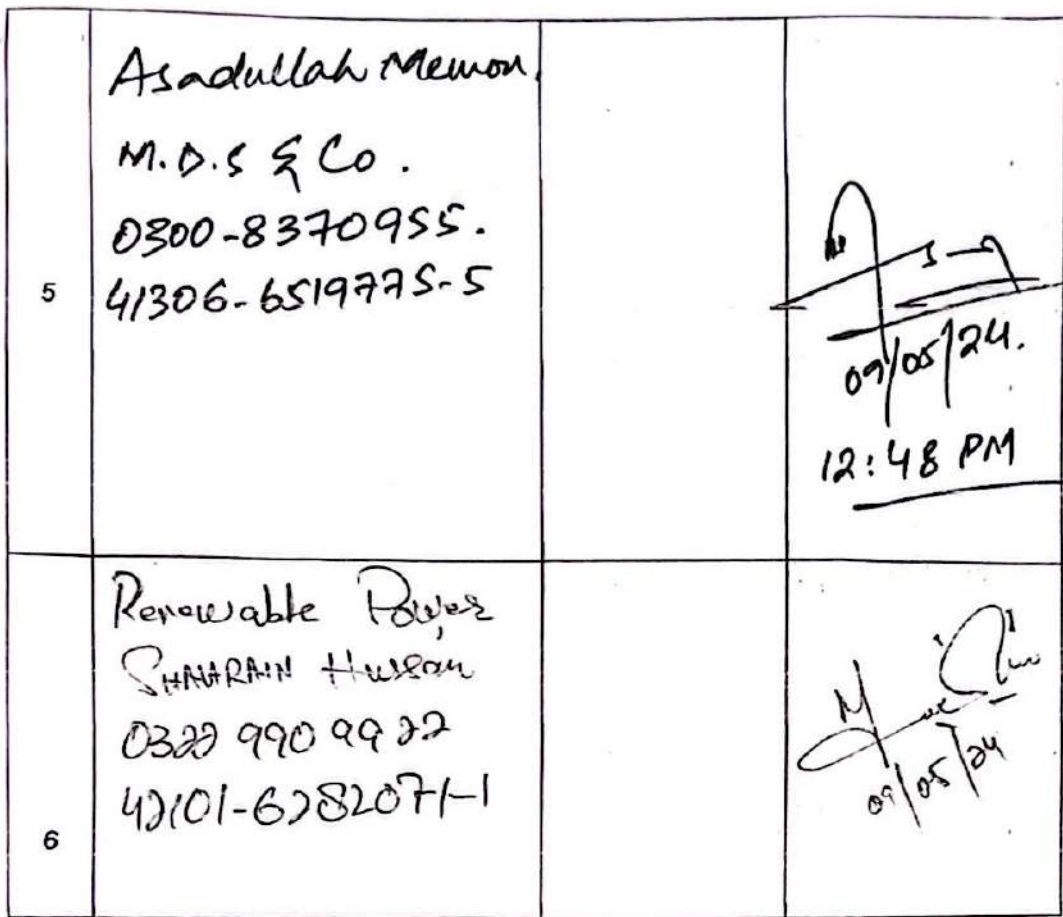 5
Asadullah Memon.
M.D.S & Co.
0300-8370955.
41306-6519775-5
09/05/24.
12:48 PM
6
Renewable Power
Hussain
0322 990 9922
42101-6282071-1
09/05/24